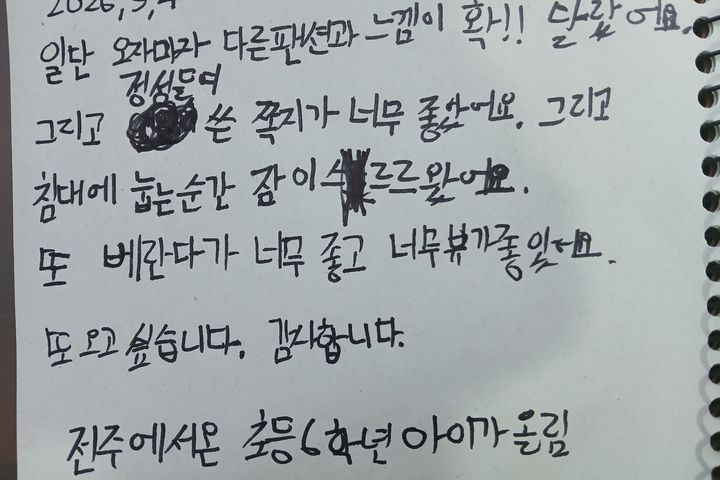 2026, 5, 4
일단 오자마자 다른팬션과 느낌이 확!! 달랐어요.
정성들여
그리고 쓴 쪽지가 너무 좋았어요. 그리고
침대에 눕는순간 잠이 스르르 왔어요.
또 베란다가 너무 좋고 너무뷰가좋있어요.
또 오고 싶습니다. 감사합니다.
전주에서온 초등6학년 아이가 올림